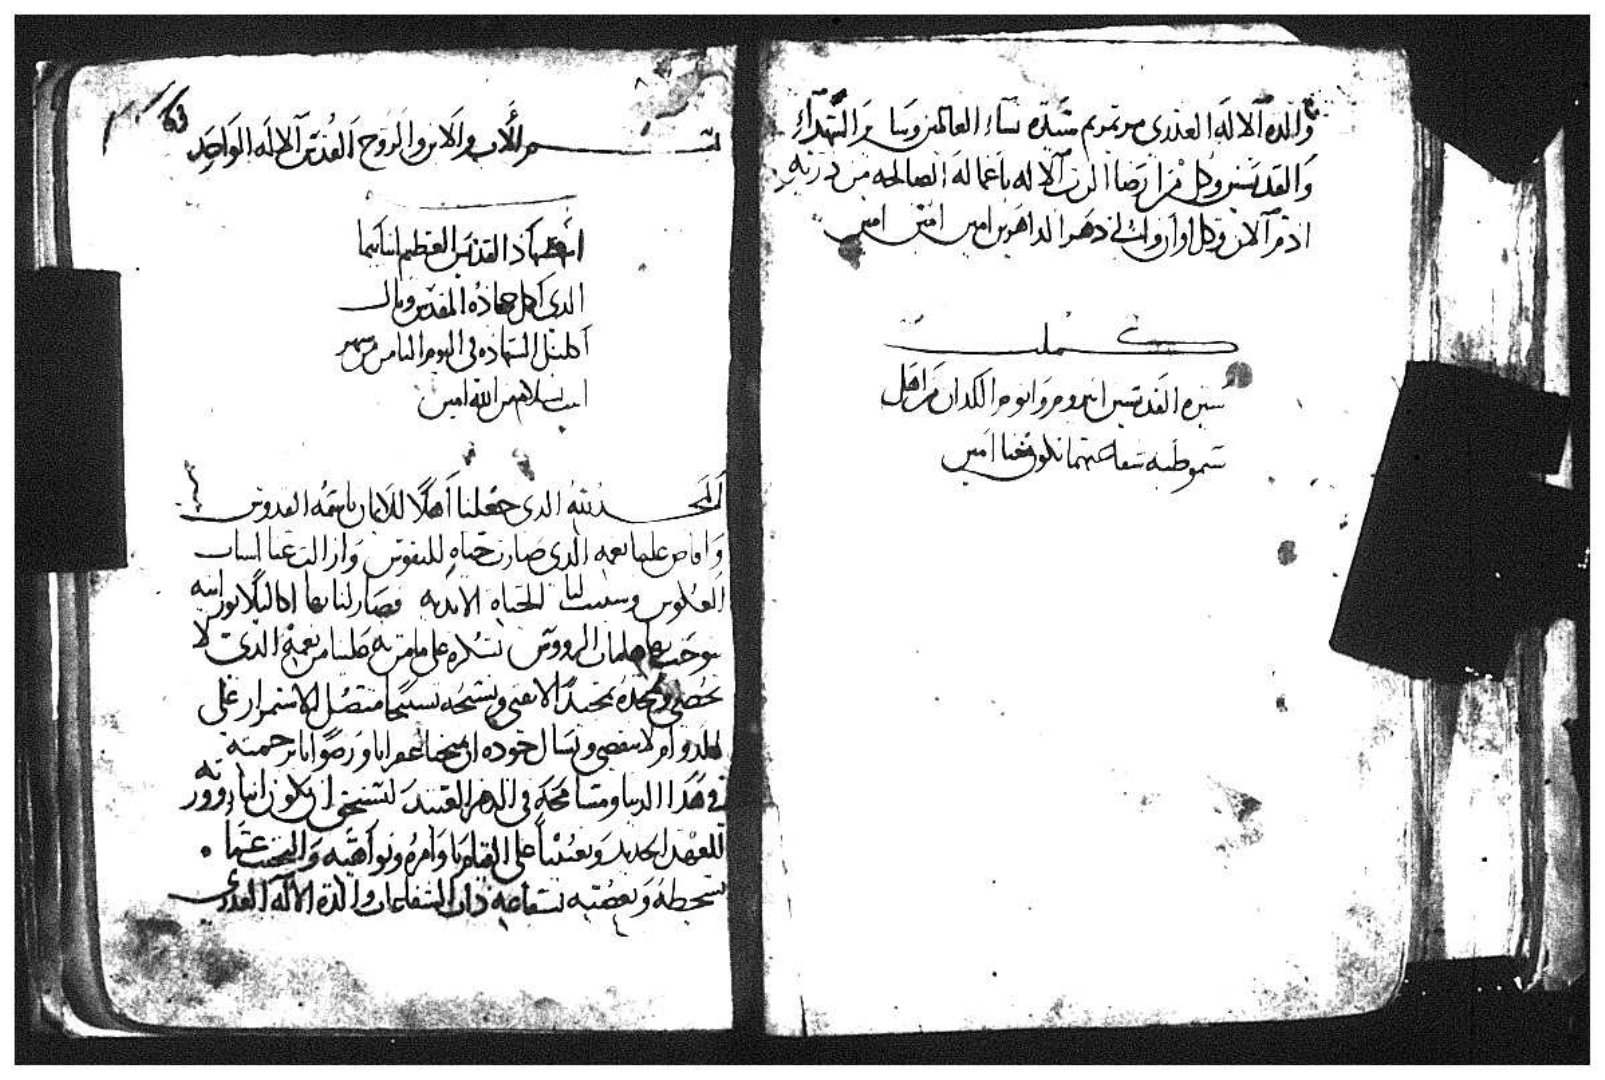 والدة الاله العذرى مرتمريم سيده نساء العالمين وساير الشهداء
والقديسين وكل من ارضا الرب الاله باعماله الصالحه من ذرية
ادم الان وكل اوان والى دهر الداهرين امين امين امين
كملت
سيرة القديسين ابيروم واتوم الكداين من اهل
سموطيه شفاعتهما تكون معنا امين
63
بسم الاب والابن والروح القدس الاله الواحد
استشهاد القديس العظيم انبا بيما
الدى اكمل جهاده المقدس ونال
اكليل الشهاده فى اليوم الثامن من شهر
ابيب بسلام من الله امين
الحمد لله الدى جعلنا اهلا للايمان باسمه القدوس
وافاض علينا نعمه الدى صارت حياه للنفوس وازالت عنا اسباب
العكوس وسببت لنا الحياه الابديه وصار لنا بها اكاليلا نورانيه
بها هامات الرووس نشكره على ما من به علينا من نعمه الدى لا
تحصى ونمجده تمجيدا لا يفنى ونسبحه تسبيحا متصل الاستمرار على
الدوام لا ينقضى ونسال جوده ان يمنحنا غفرانا ورضوانا برحمته
فى هذا الدنيا ومسامحه فى الدهر العتيد لنستحق ان نكون ابنا
للعهد الجديد ويعيننا على القيام باوامره ونواهيه والتجنب عما
يسخطه ويغضبه بشفاعة ذات الشفاعات والدة الاله العذرى